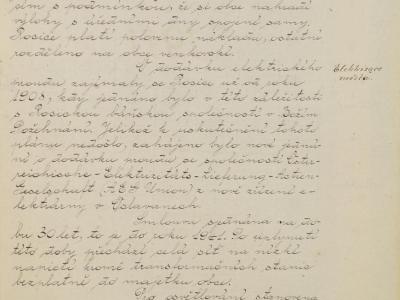 jim s podmínkou, že si obce nahradí
výlohy s úředními dny spojené samy.
Rosice platí polovinu nákladu, ostatní
rozděleno na obce venkovské.
O dodávku elektrického
proudu zajímaly se Rosice už od roku
1908, kdy jednáno bylo v této záležitosti
s Rosickou báňskou společností v Božím
Požehnání. Jelikož k uskutečnění tohoto
plánu nedošlo, zahájeno bylo nové jedná-
ní o dodávku proudu se společností Öster-
reichische-Elektrizitäts-Lieferung-Actien-
Geselschaft (A.E.G. Union) z nově zřízené e-
lektrárny v Oslavanech.
Smlouva sjednána na do-
bu 30 let, to je do roku 1941. Po uplynutí
této doby přechází celá síť na nízké
napětí kromě transformačních stanic
bezplatně do majetku obcí.
Pro osvětlování stanovena
Elektrisace
města.